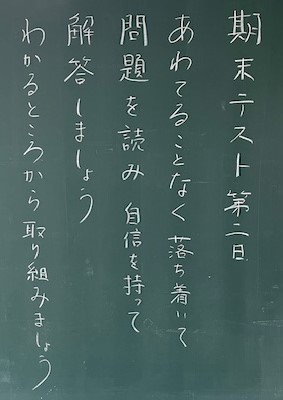 期末テスト第二日
あわてることなく落ち着いて
問題を読み自信を持って
解答しましょう
わかるところから取り組みましょう